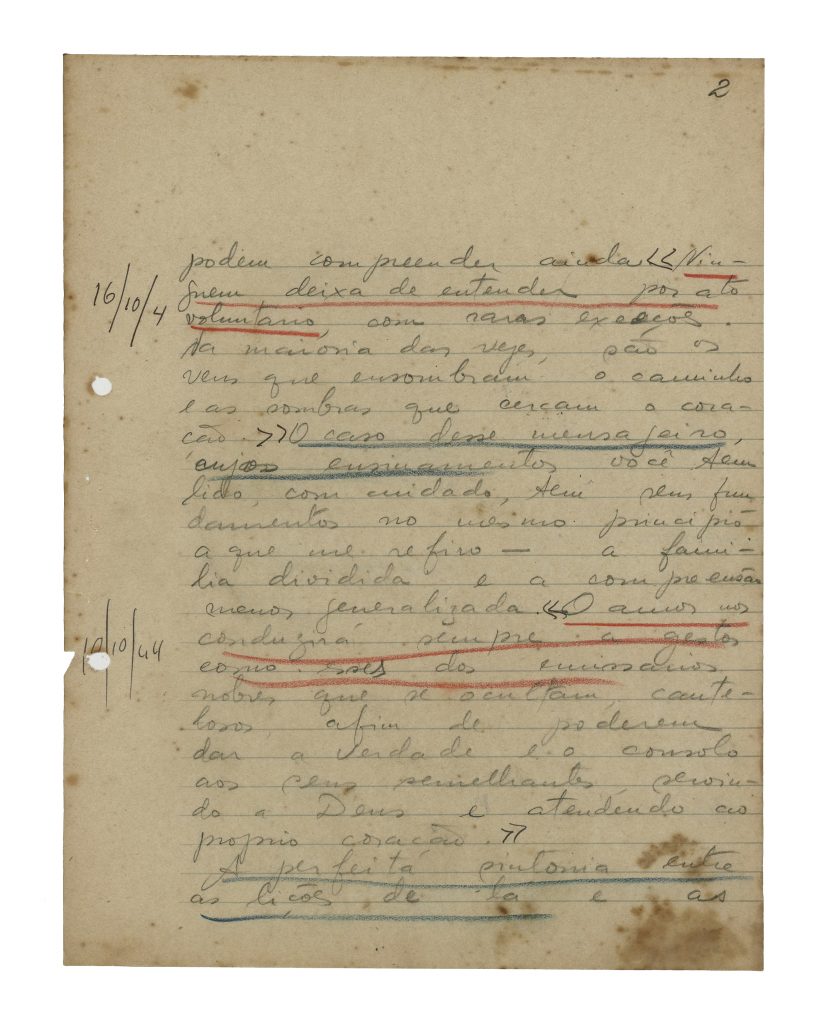 2
podem compreender ainda << Nin-
16/10/4
guem deixa de entender por ato
voluntario, com raras exceções.
Na maioria das vezes, são os
veus que ensombram o caminho
e as sombras que cercam o cora-
ção. >> O caso desse mensajeiro,
cujos ensinamentos você tem
lido, com cuidado, tem seus fun
damentos no mesmo principio
a que me refiro — a fami-
lia dividida e a compreensão
menos generalizada. << O amor nos
10/10/44
conduzirá sempre a gestos
como esses dos emissarios
nobres que se ocultam, caute-
losos, afim de poderem
dar a verdade e o consolo
aos seus semelhantes, servin-
do a Deus e atendendo ao
proprio coração. >>
A perfeita sintonia entre
as lições de lá e as